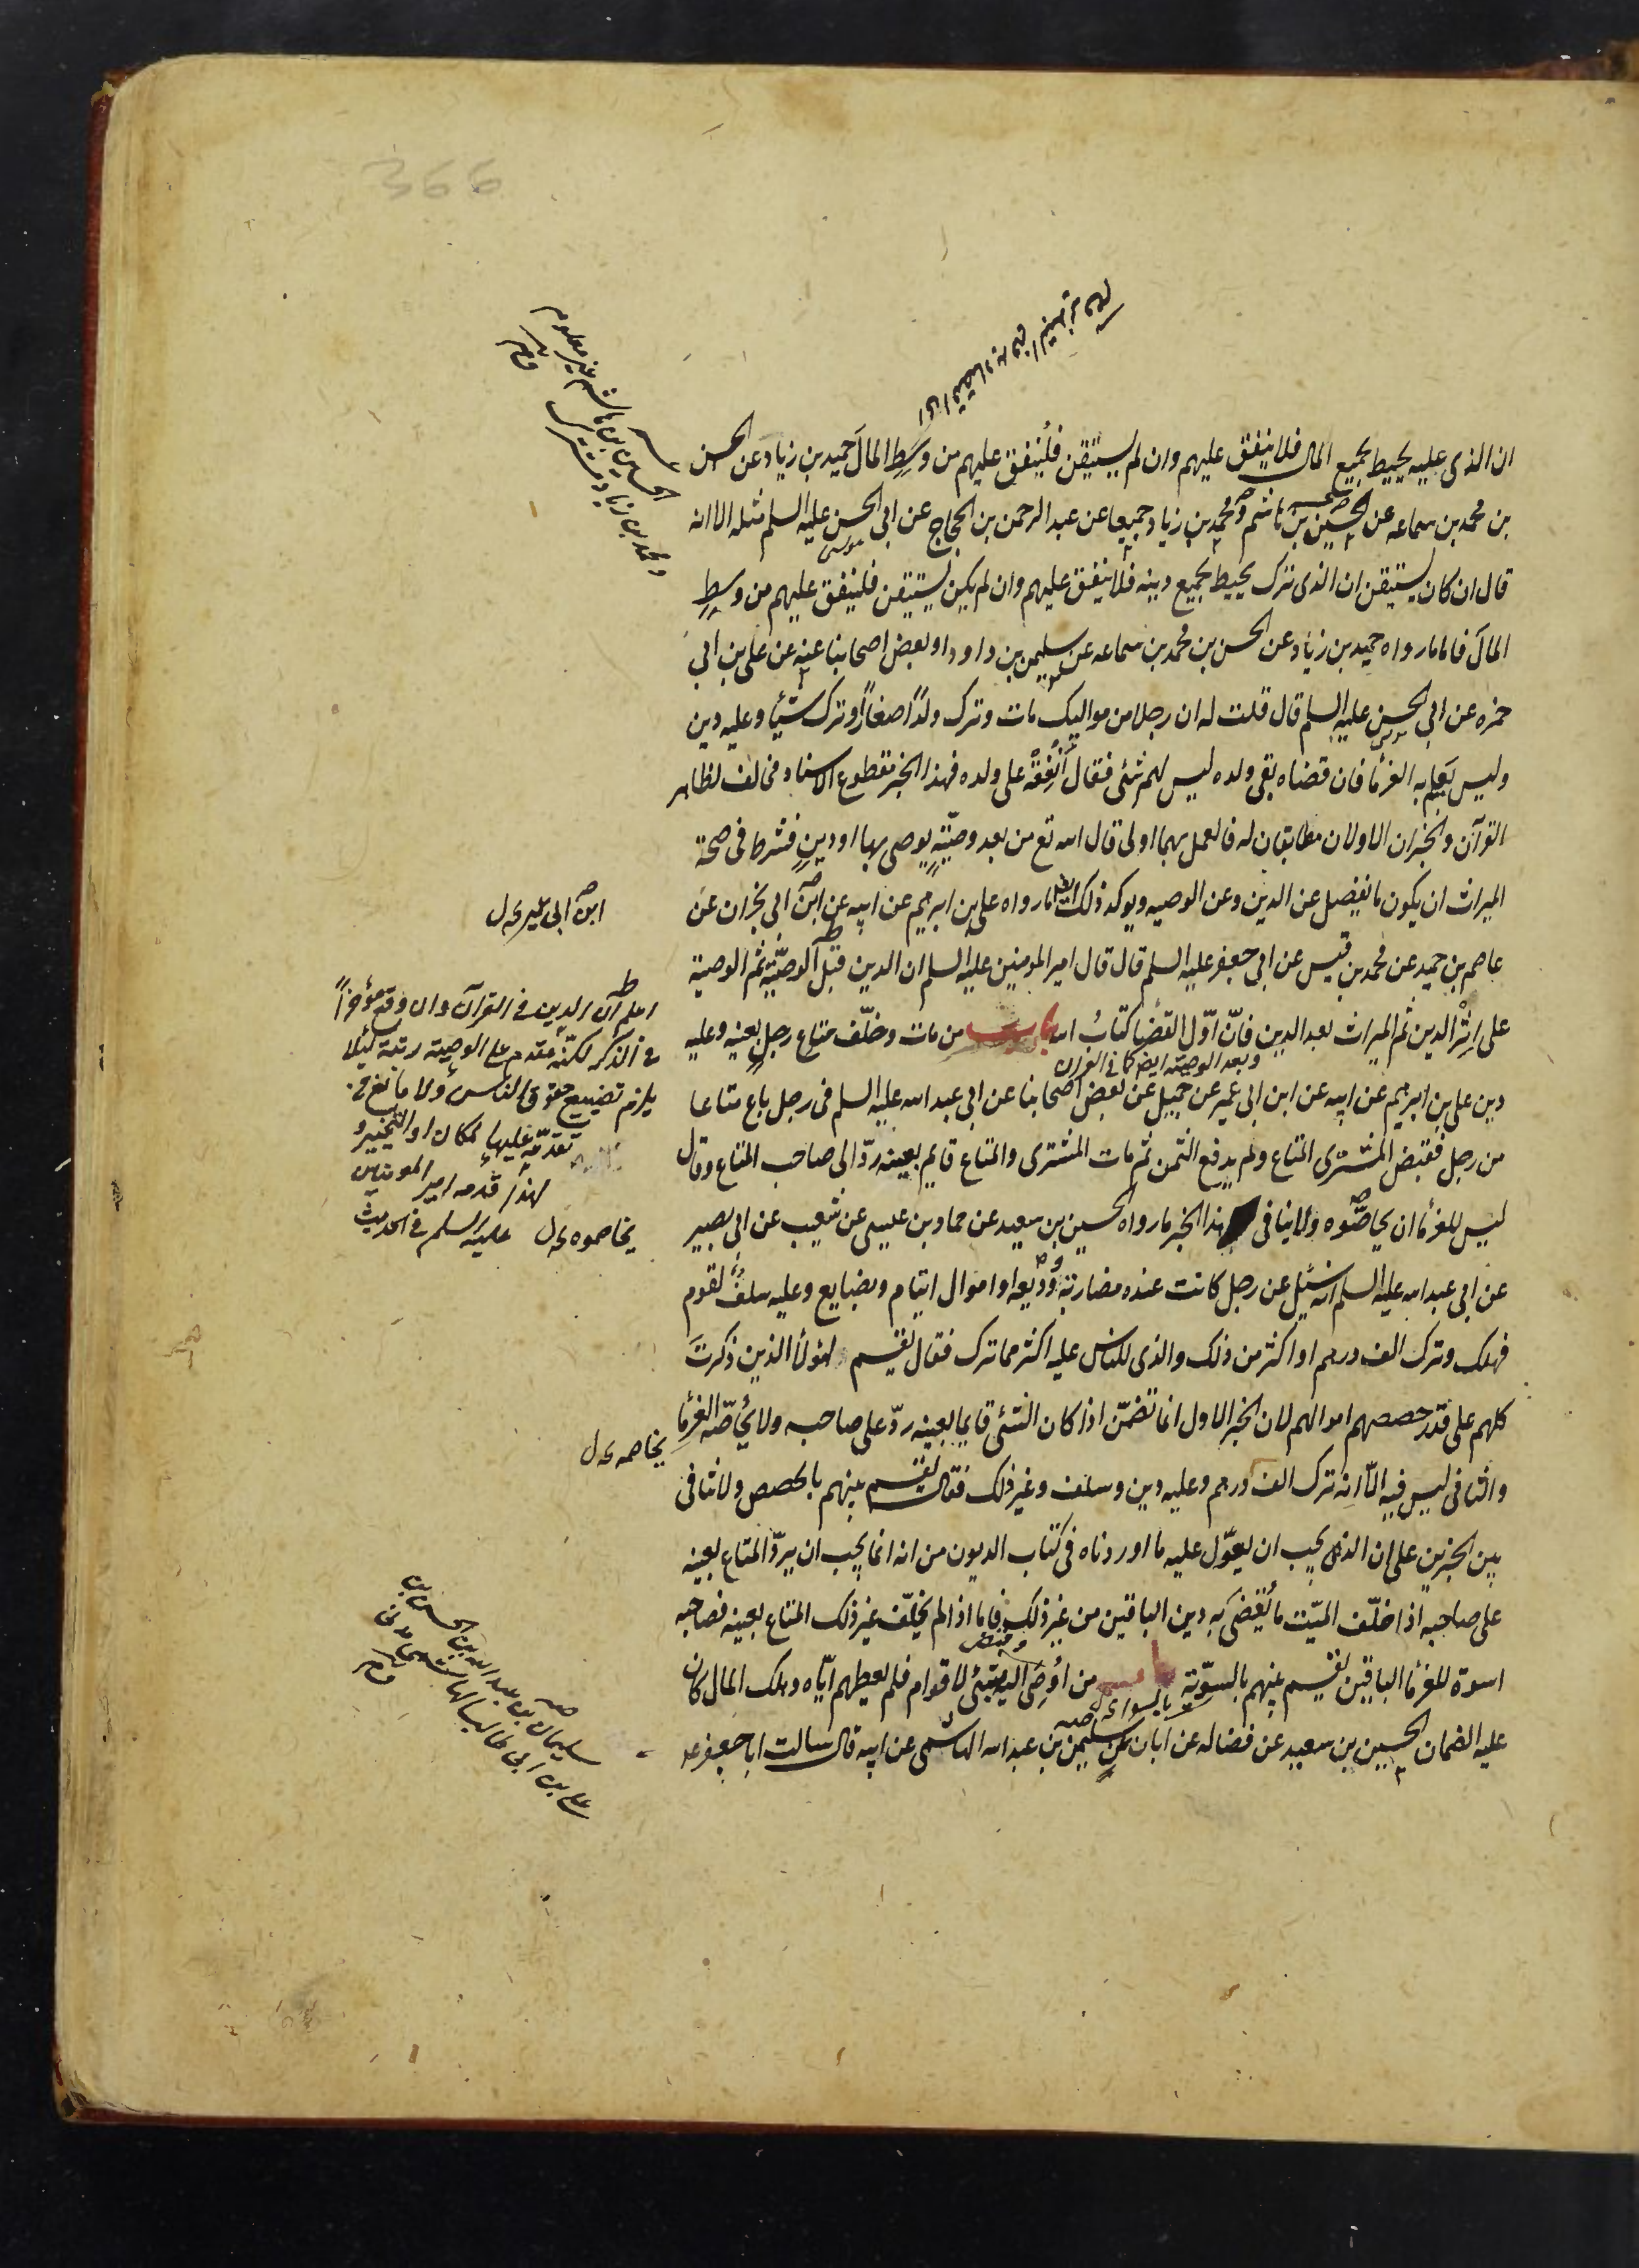 366
ان الذى عليه يحيط بجميع المال فلا ينفق عليهم وان لم يستيقن فلينفق عليهم من وسط المال حميد بن زياد عن الحسن
بن محمد بن سماعه عن الحسين بن هاشم و محمد بن زياد جميعا عن عبد الرحمن بن الحجاج عن ابى الحسن عليه السلم مثله الا انه
موسى
قال ان كان يستيقن ان الذى ترك يحيط بجميع دينه فلا ينفق عليهم وان لم يكن يستيقن فلينفق عليهم من وسط
المال فاما ما رواه حميد بن زياد عن الحسن بن محمد بن سماعه عن سليمن بن داود او بعض اصحابنا عنه عن على بن ابى
حمزه عن ابى الحسن عليه السلم قال قلت له ان رجلا من مواليك مات وترك ولدًا صغارًا وترك شيئا وعليه دين
وليس يعلم به الغرما فان قضاه بقى ولده ليس لهم شئ فقال أَنفِقْهُ على ولده فهذا الخبر مقطوع الاسناد مخالف لظاهر
القرآن والخبران الاولان مطابقان له فالعمل بهما اولى قال الله تع من بعد وصيّةٍ يوصى بها او دينٍ فشرط فى صحة
الميراث ان يكون ما يفضل عن الدين وعن الوصيه ويوكد ذلك ايضا ما رواه على بن ابرهيم عن ابيه عن ابن ابى نجران عن
عاصم بن حميد عن محمد بن قيس عن ابى جعفر عليه السلم قال قال امير المومنين عليه السلم ان الدين قبل الوصيّة ثم الوصية
على اثر الدين ثم الميراث بعد الدين فانّ اوّل القضا كتابُ الله باب من مات وخلّف متاع رجلٍ بعينه وعليه
وبعد الوصيته ايضا كما فى القران
دين على بن ابرهيم عن ابيه عن ابن ابى عمير عن جميل عن بعض اصحابنا عن ابى عبد الله عليه السلم فى رجل باع متاعا
من رجل فقبض المشترى المتاع ولم يدفع الثمن ثم مات المشترى والمتاع قايم بعينه ردّ الى صاحب المتاع وقال
ليس للغرما ان يحاصّوه ولا ينافى هذا الخبر ما رواه الحسين بن سعيد عن حماد بن عيسى عن شعيب عن ابى بصير
عن ابى عبد الله عليه السلم انه سئيل عن رجل كانت عنده مضاربة ووديعه او اموال ايتام وبضايع وعليه سلفٌ لقوم
فهلك وترك الف درهم او اكثر من ذلك والذى للناس عليه اكثر مما ترك فقال يقسم لهؤلأ الذين ذكرتَ
كلهم على قدر حصصهم اموالهم لان الخبر الاول انما تضمّن اذا كان الشئ قايما بعينه ردّ على صاحبه ولا يحاصّه الغرما
والثانى ليس فيه الّا انه ترك الف درهم وعليه دين وسلف وغير ذلك فقال يقسم بينهم بالحصص ولا تنافى
بين الخبرين على ان الذى يجب ان يعوّل عليه ما اوردناه فى كتاب الديون من انه انما يجب ان يردّ المتاع بعينه
على صاحبه اذا خلّف الميّت ما يُقضى به دين الباقين من غير ذلك فاما اذا لم يخلّف غير ذلك المتاع بعينه فصاحبه
اسوة للغرما الباقين يقسم بينهم بالسويّة باب من اوصى اليه بشئ لاقوام فلم يعطهم ايّاه وهلك المال كان
عليه الضمان الحسين بن سعيد عن فضاله عن ابان عن سليمن بن عبد الله الهاشمى عن ابيه قال سالت ابا جعفر ع
الحسين بن هاشم غير معلوم
ومحمد بن زياد مشترك
ابن ابى عمير ل
اعلم ان الدين فى القرآن وان وقع مؤخرًا
فى الذكر لكنّه مقدم على الوصية رتبة لئلا
يلزم تضييع حقوق الناس ولا مانع فى
تقدمّه عليها لمكان او التخيير و
لهذا قدمه امير المومنين
عليه السلم فى الحديث
يخاصموه ل
يخاصمه ل
سليمان بن عبد الله بن الحسن بن
على بن ابى طالب الهاشمى مدنى